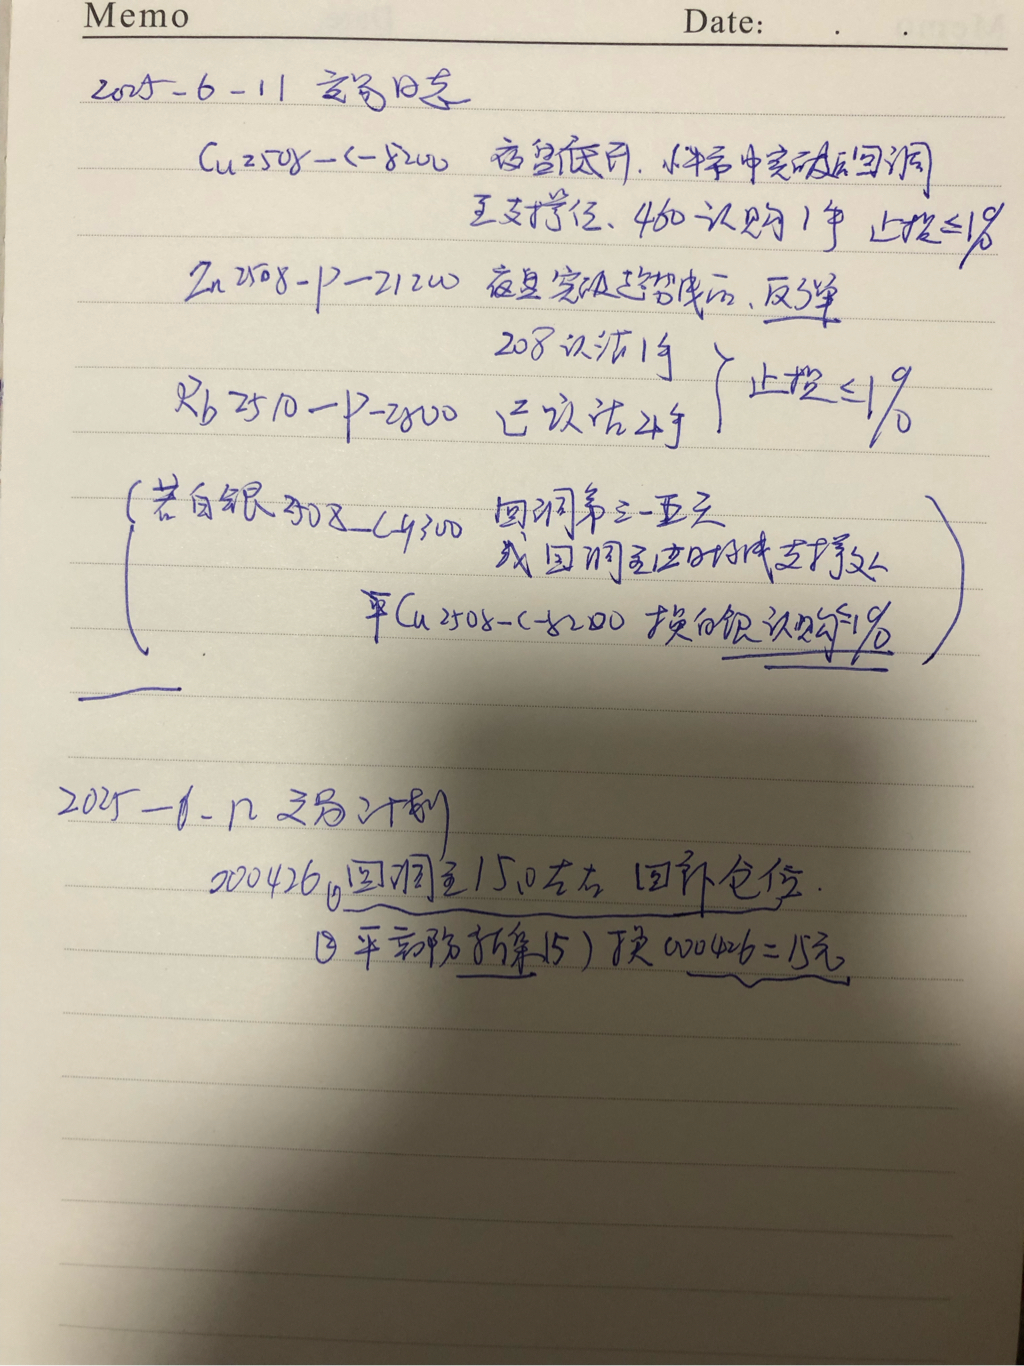 Memo Date: . .
2025-6-11 交易日志
Cu2508-C-8200 夜盘低开. 突破后回调
至支撑位、460认购1手 止损≤1%
Zn2508-P-21200 夜盘突破趋势线后、反弹
208认沽1手
} 止损≤1%
Rb2510-P-2800 已认沽2手
(若白银2508-C-9300 回调第三-五天
或回调至 日均线支撑处
平Cu2508-C-8200 换白银认购≤1%)
2025-6-12 交易计划
000426 ①回调至15.0左右 回补仓位.
②平 15) 换000426=15元